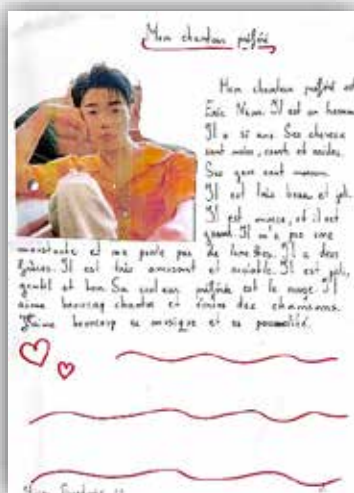 Mon chanteur préféré
Mon chanteur préféré est
Eric Nam. Il est un homme
Il a
ans. Ses cheveux
sont noirs, courts et raides.
Ses yeux sont marron
Il est très beau et joli.
Il est mince, et il est
grand. Il n'a pas une
moustache et ne porte pas de lunettes. Il a deux
frères. Il est très amusant et sociable. Il est poli,
gentil et bon. Sa couleur préférée est le rouge. Il
aime beaucoup chanter et écrire des chansons.
J'aime beaucoup sa musique et sa personalité.